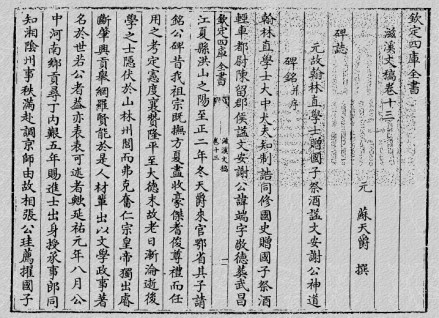 欽定四庫全書
滋溪文稿卷十三
元 蘇天爵 撰
碑誌
元故翰林直學士贈國子祭酒諡文安謝公神道
碑銘并序
翰林直學士大中大夫知制誥同修國史贈國子祭酒
輕車都尉陳留郡侯諡文安謝公諱端字敬德葬武昌
欽定四庫全書
滋溪文稿
卷十三
一
江夏縣洪山之陽至正二年冬天爵來官鄂省其子請
銘公碑昔我祖宗既撫方夏盡收豪傑耆俊尊禮而任
用之考定憲度襄贊隆平至大德末故老日漸淪逝後
學之士隱伏於山林州閭而弗克奮仁宗皇帝獨出睿
斷肇興貢舉網羅賢能於是人材輩出以文學政事著
名於世若公者蓋亦表表可述者歟延祐元年八月公
中河南鄉貢尋丁内艱五年賜進士出身授承事郎同
知湘陰州事秩滿赴調京師由故相張公珪薦擢國子